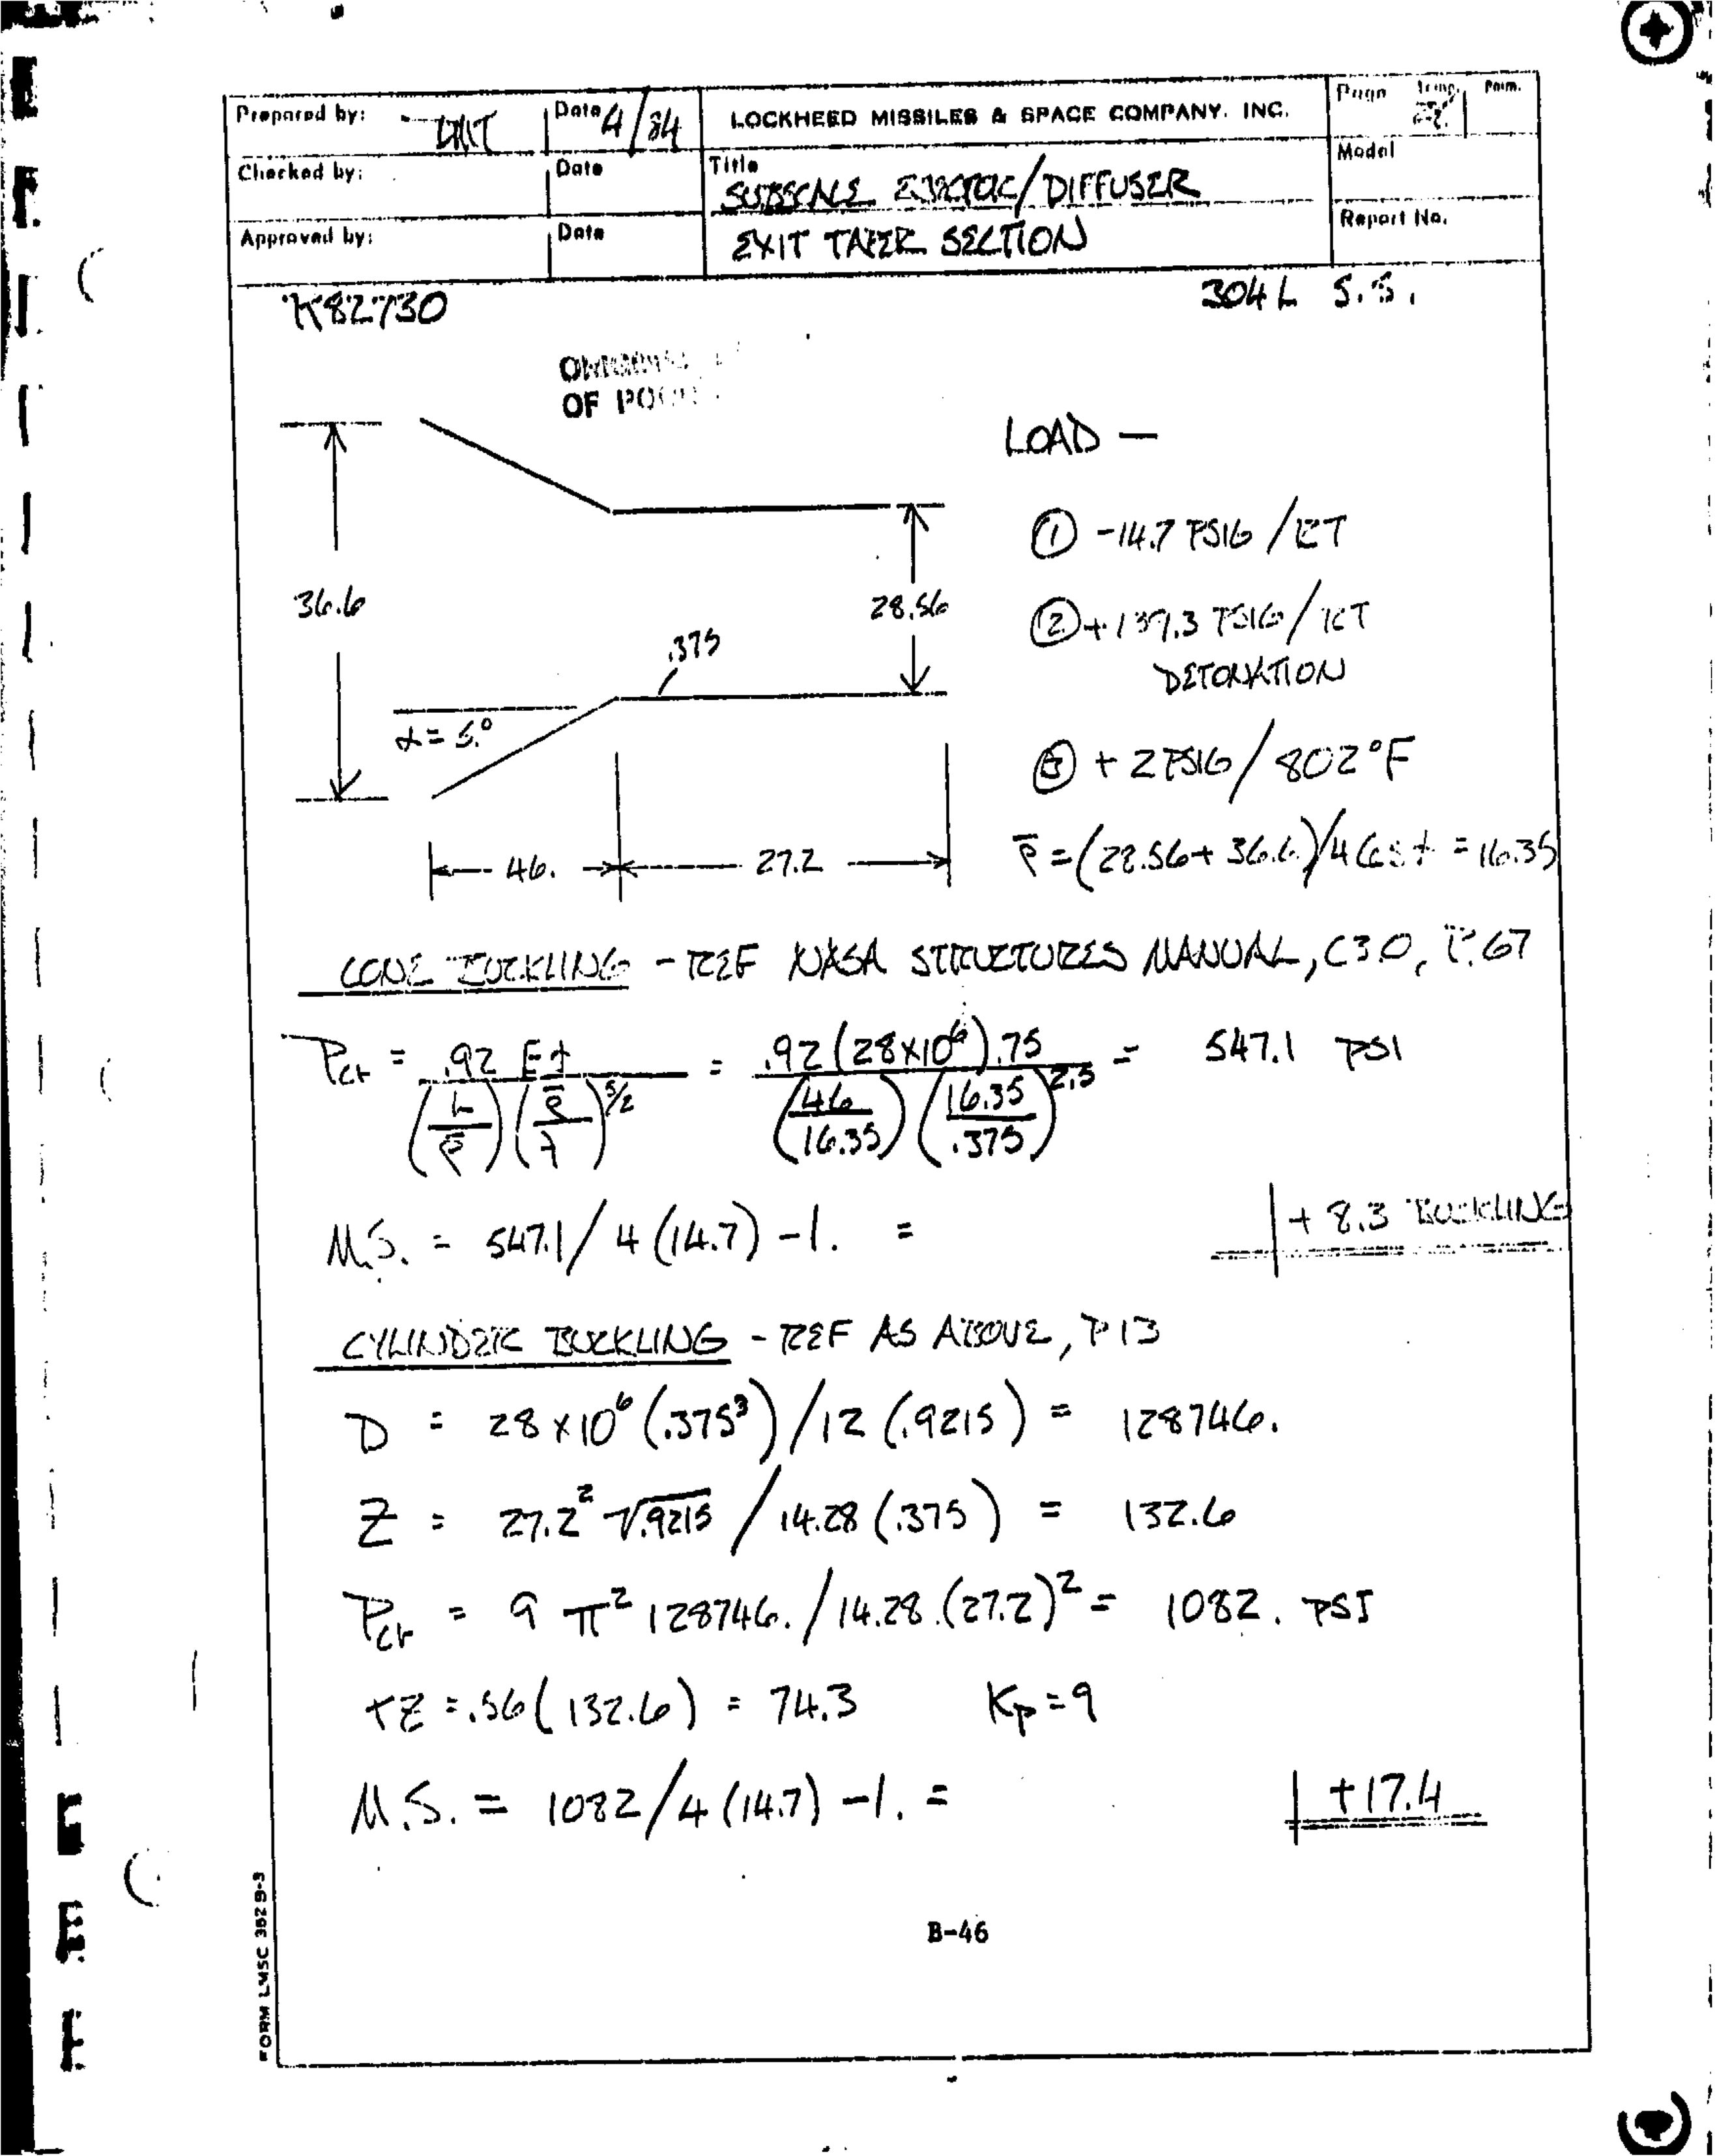 Prepared by: Date 4/84 LOCKHEED MISSILES & SPACE COMPANY. INC. Page Temp. Perm.
Checked by: Date Title SUBSCALE EJECTOR/DIFFUSER Model
Approved by: Date EXIT TAPER SECTION Report No.
K82730 304L S.S.
OF POOR
LOAD —
① -14.7 PSIG/RT
36.6 28.56 ② +139.3 PSIG/RT
.375 DETONATION
α = 5.°
③ + 2 PSIG/802°F
46. 27.2 ρ̄ = (28.56+36.6)/4 cos α = 16.35
CONE BUCKLING - REF NASA STRUCTURES MANUAL, C3.0, P.67
Pcr = .92 E t / (L/ρ̄)(ρ̄/t)^5/2 = .92 (28×10^6).75 / (46/16.35)(16.35/.375)^2.5 = 547.1 PSI
M.S. = 547.1/4(14.7) -1. = +8.3 BUCKLING
CYLINDER BUCKLING - REF AS ABOVE, P13
D = 28×10^6 (.375³)/12(.9215) = 128746.
Z = 27.2² √.9215 / 14.28(.375) = 132.6
Pcr = 9 π² 128746./14.28.(27.2)² = 1082. PSI
γZ = .56(132.6) = 74.3 Kp = 9
M.S. = 1082/4(14.7) -1. = +17.4
B-46
FORM LMSC 362 B-3